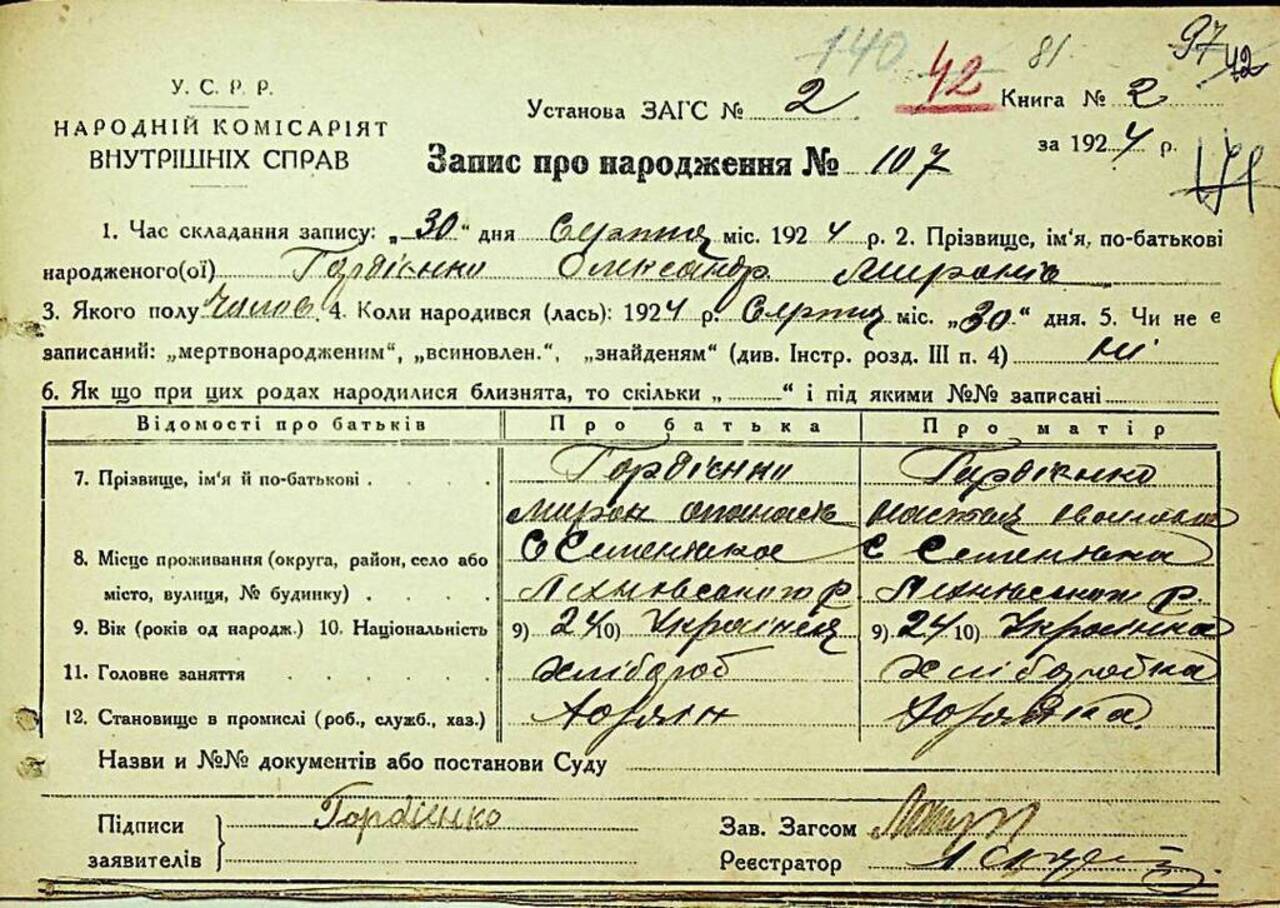 140 42 81. 97 42
У. С. Р. Р.
НАРОДНІЙ КОМІСАРІЯТ
ВНУТРІШНІХ СПРАВ
Установа ЗАГС № 2 Книга № 2
Запис про народження № 107 за 1924 р.
171
1. Час складання запису: „30" дня Серпня міс. 1924 р. 2. Прізвище, ім'я, по-батькові
народженого(ої) Гордієнко Олександр Миронів
3. Якого полу чолов. 4. Коли народився (лась): 1924 р. Серпня міс. „30" дня. 5. Чи не є
записаний: „мертвонародженим", „всиновлен.", „знайденям" (див. Інстр. розд. III п. 4) ні
6. Як що при цих родах народилися близнята, то скільки „ " і під якими №№ записані
Відомості про батьків Про батька Про матір
7. Прізвище, ім'я й по-батькові Гордієнко Гордієнко
Мирон Опанасів Настая Іванівна
8. Місце проживання (округа, район, село або С Семенівка С Семенівка
місто, вулиця, № будинку) р. р.
9. Вік (років од народж.) 10. Національність 9) 24 10) Українец 9) 24 10) Українка
11. Головне заняття хлібороб хліборобка
12. Становище в промислі (роб., служб., хаз.) Хозяїн Хозяйка
Назви и №№ документів або постанови Суду
Підписи Гордієнко Зав. Загсом
заявителів Реєстратор